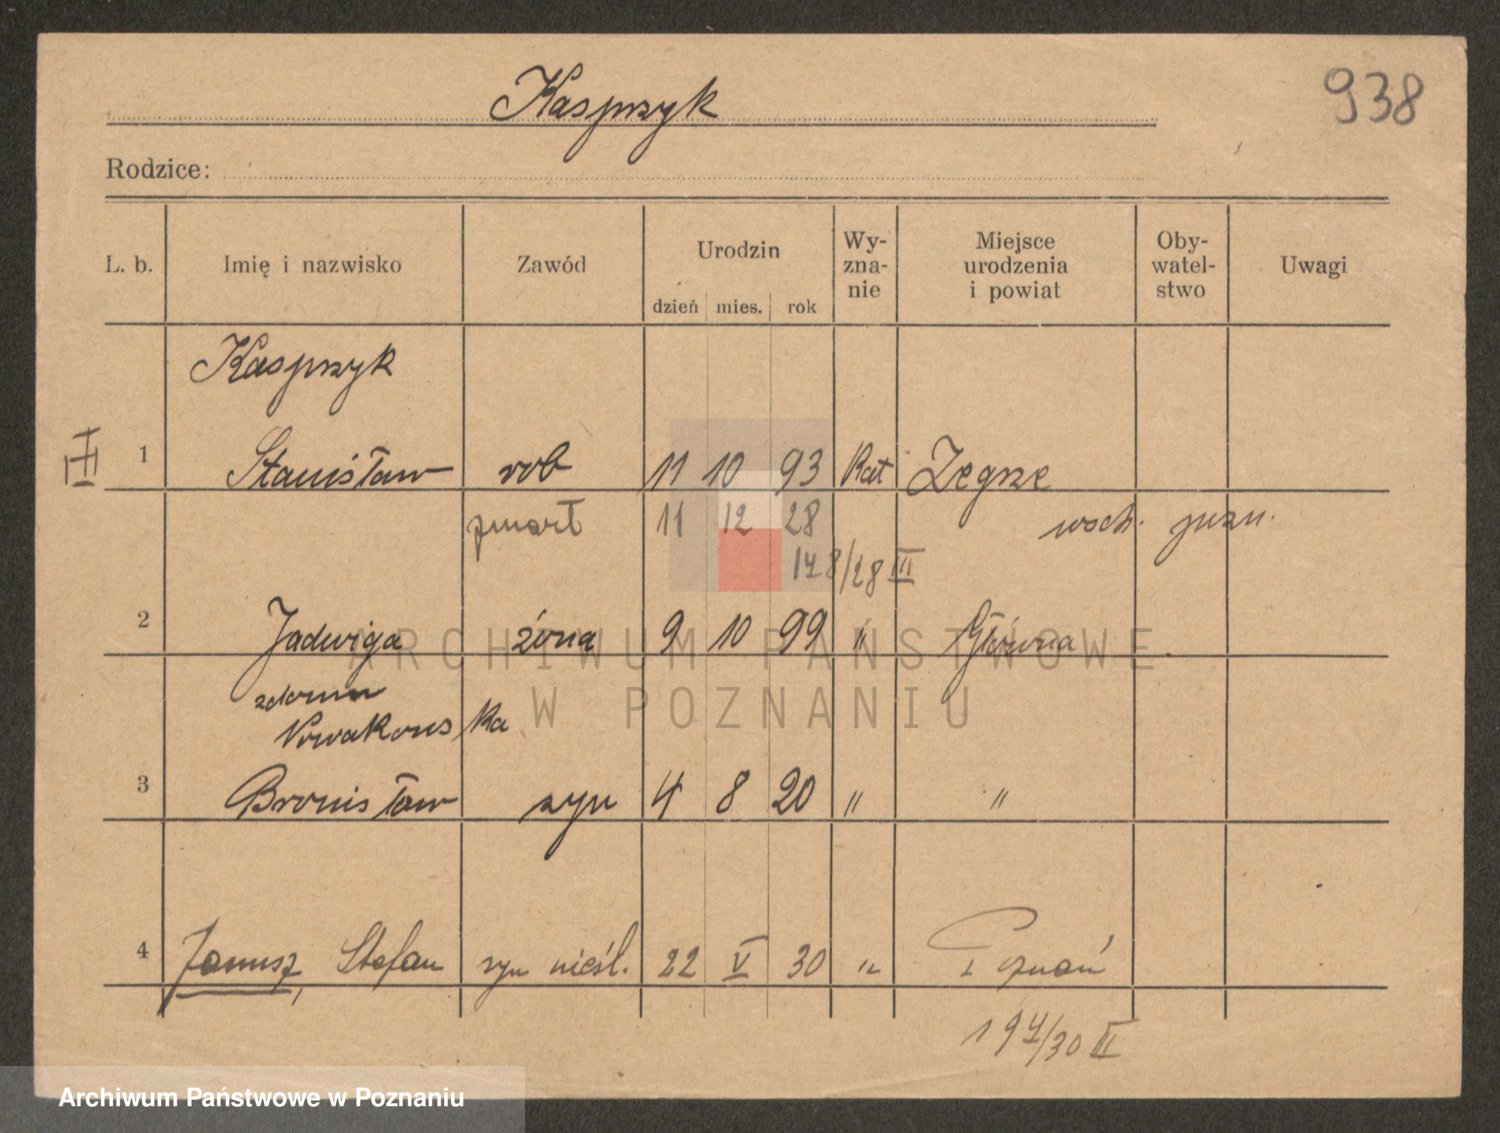 938
Kasprzyk
Rodzice:
L. b. Imię i nazwisko Zawód Urodzin dzień mies. rok Wy-zna-nie Miejsce urodzenia i powiat Oby-watel-stwo Uwagi
Kasprzyk
III 1 Stanisław rob 11 10 93 Kat Zegrze
zmarł 11 12 28 wsch. pozn.
148/28 III
2 Jadwiga żona 9 10 99 " Główna
zdomu
Nowakowska
3 Bronisław syn 4 8 20 " "
4 Janusz, Stefan syn nieśl. 22 V 30 " Poznań
194/30 III
ARCHIWUM PAŃSTWOWE
W POZNANIU
Archiwum Państwowe w Poznaniu